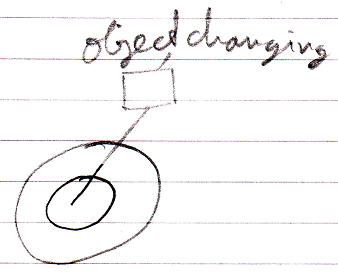 object changing